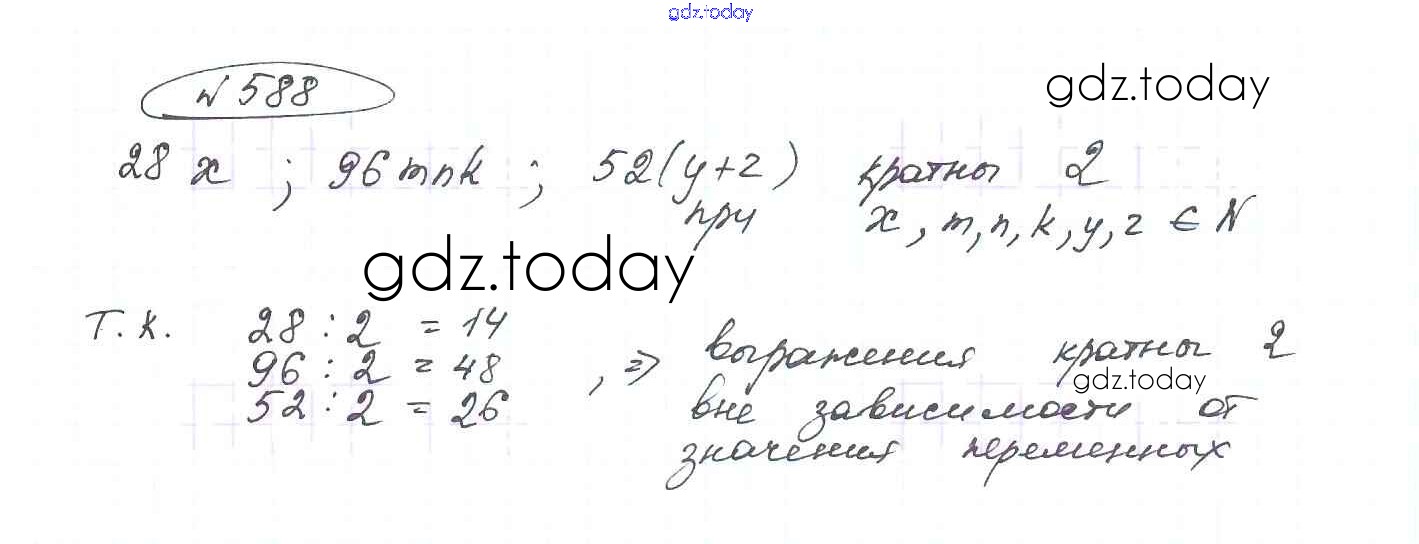 gdz.today
№ 588
gdz.today
28 x ; 96 mnk ; 52(y+z) кратны 2
при x, m, n, k, y, z ∈ N
gdz.today
Т.к. 28 : 2 = 14
96 : 2 = 48 , ⇒ выражения кратны 2
gdz.today
52 : 2 = 26 вне зависимости от
значения переменных